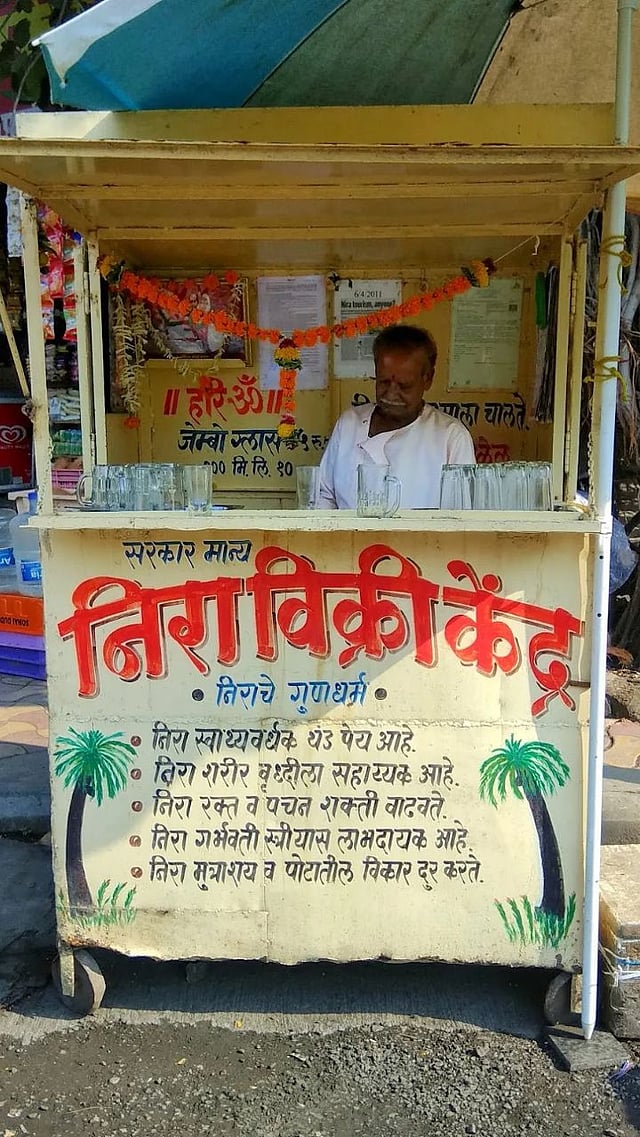 6/4/2011
Nira tourism, anyone?
॥ हरि ॐ ॥
जेम्बो ग्लास
मि. लि. १०
चालते.
सरकार मान्य
निरा विक्री केंद्र
• निराचे गुणधर्म •
• निरा स्वाथ्यवर्धक थंड पेय आहे.
• निरा शरीर वृध्दीला सहाय्यक आहे.
• निरा रक्त व पचन शक्ती वाढवते.
• निरा गर्भवती स्त्रीयास लाभदायक आहे.
• निरा मुत्राशय व पोटातील विकार दुर करते.